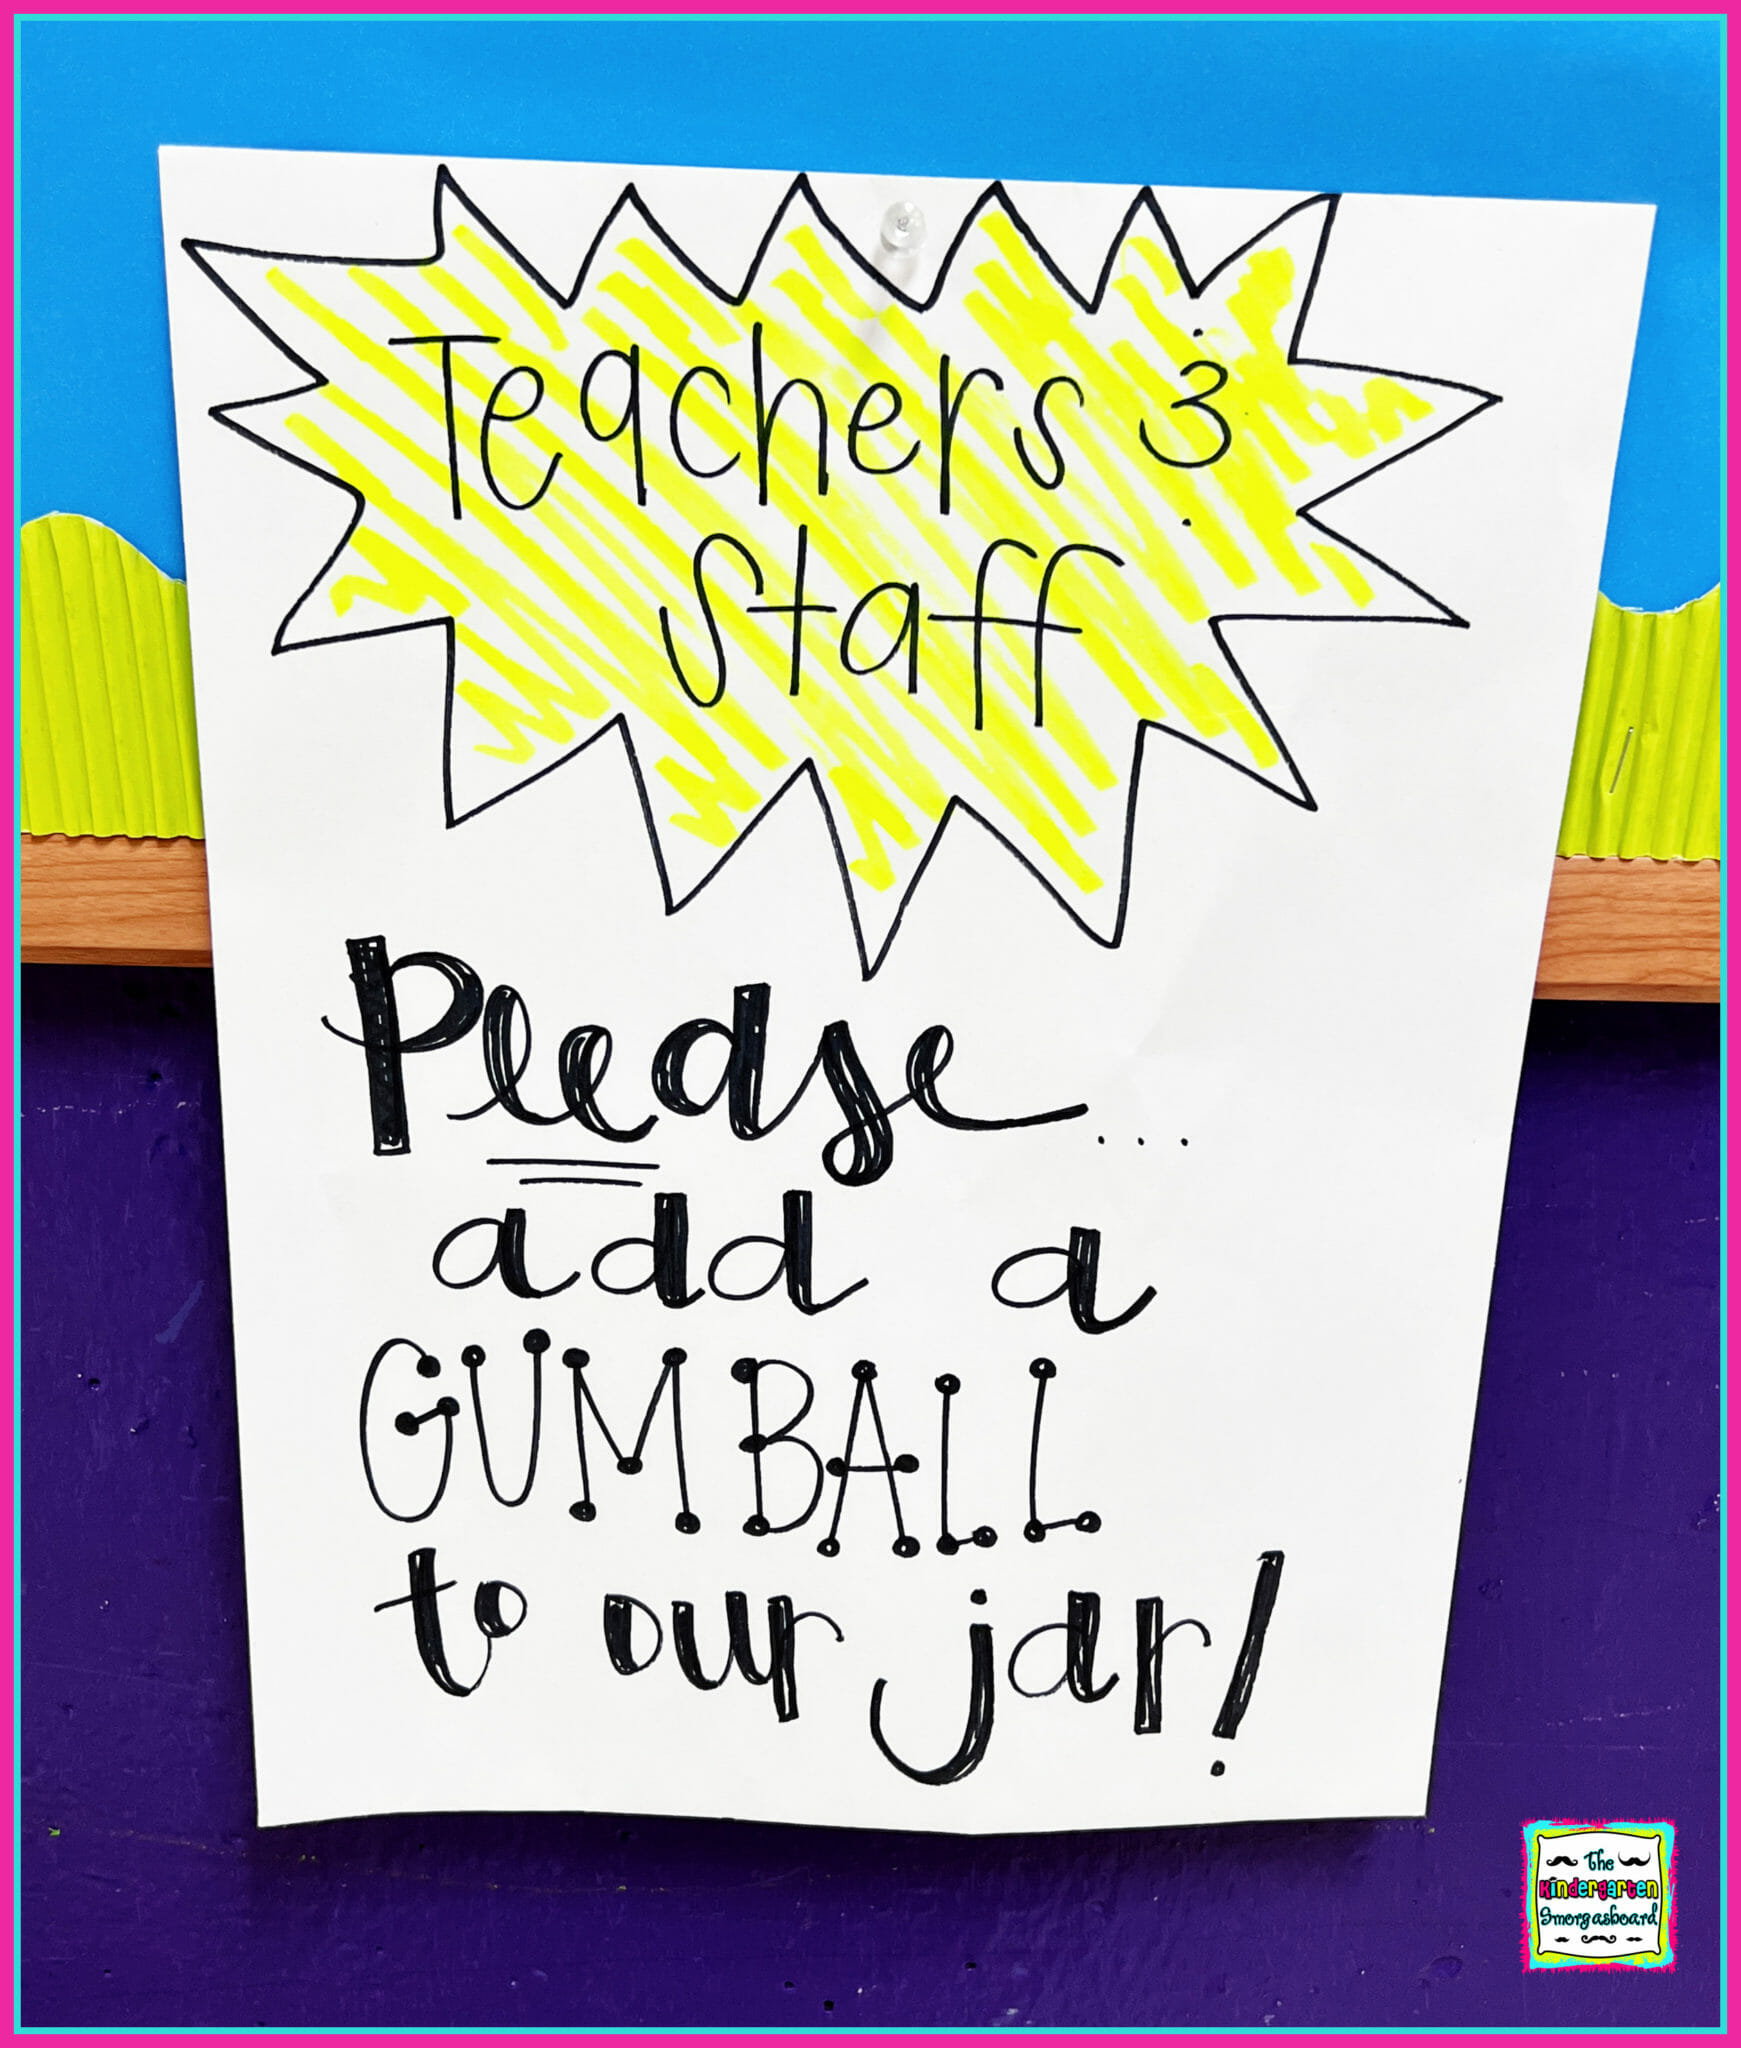 Teachers &
Staff
Please...
add a
GUMBALL
to our jar!
The
Kindergarten
Smorgasboard